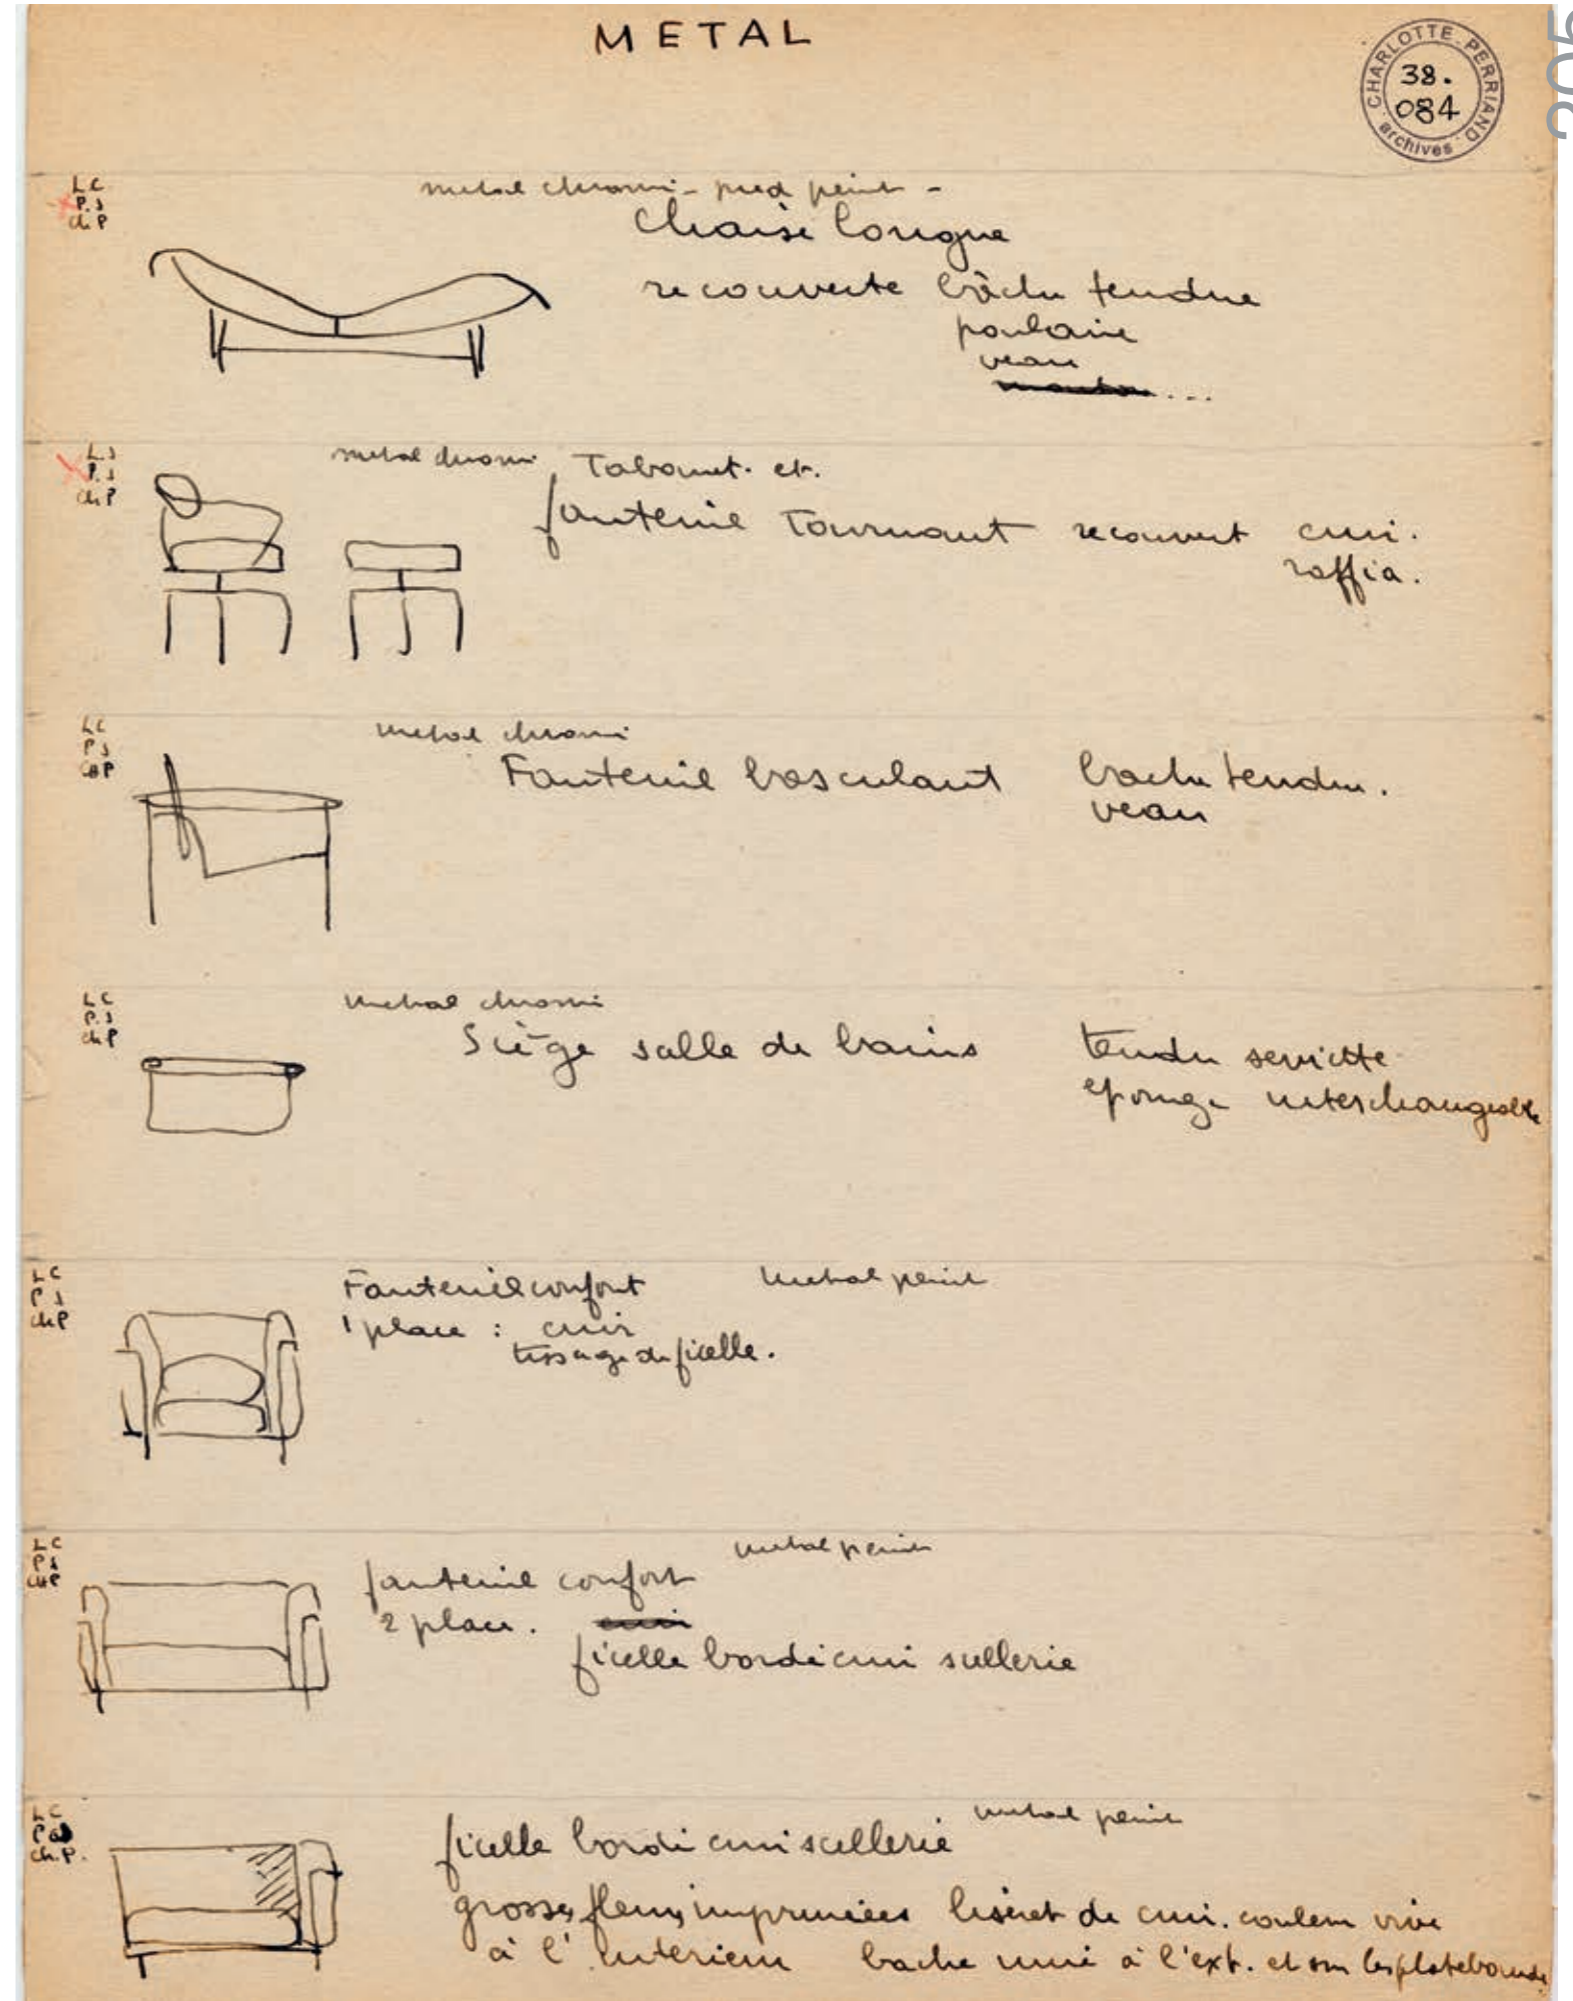 METAL
CHARLOTTE PERRIAND
38.
084
archives
205
LC
P.J
ch P
metal chromé - pied peint -
Chaise longue
recouverte bâche tendue
poulain
veau
mouton...
L.J
P.J
ch P
metal chromé Tabouret. et.
fauteuil Tournant recouvert cuir.
raffia.
LC
PJ
chP
metal chromé
Fauteuil basculant bache tendue.
veau
LC
P.J
chP
metal chromé
Siège salle de bains tendu serviette
eponge interchangeable
LC
PJ
chP
Fauteuil confort metal peint
1 place : cuir
tissage de ficelle.
LC
PJ
chP
metal peint
fauteuil confort
2 place. cuir
ficelle bordé cuir sellerie
LC
ch.P.
metal peint
ficelle bordé cuir scellerie
grosses fleurs imprimées liseret de cuir. couleur vive
à l'interieur bache unie à l'ext. et sur les platebandes